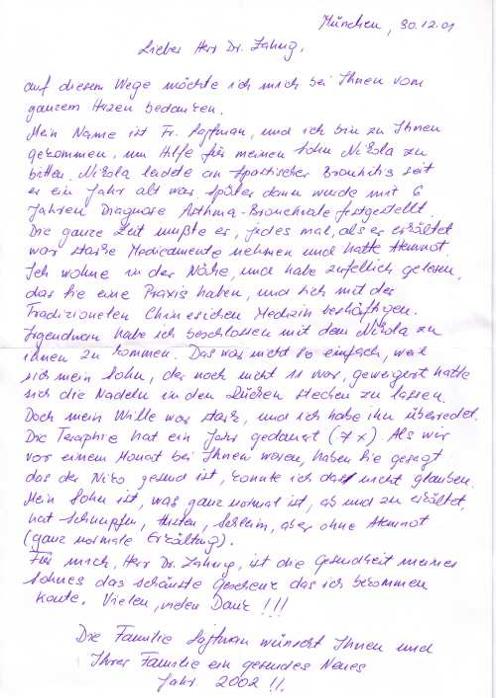 München, 30.12.01
Lieber Herr Dr. Zahng,
auf diesem Wege möchte ich mich bei Ihnen vom
ganzem Herzen bedanken.
Mein Name ist Fr. Sajfman, und ich bin zu Ihnen
gekommen, um Hilfe für meinen Sohn Nikola zu
bitten. Nikola leidete an spastischer Bronhitis seit
er ein Jahr alt war. Später dann wurde mit 6
Jahren Diagnose Asthma-Bronchiale festgestellt.
Die ganze Zeit mußte er, jedes mal, als er erkältet
war starke Medicamente nehmen und hatte Atemnot.
Ich wohne in der Nähe, und habe zufellich gelesen,
das Sie eine Praxis haben, und sich mit der
Tradizionelen Chinesichen Medizin beshäftigen.
Irgendwan habe ich beschlossen mit dem Nikola zu
ihnen zu kommen. Das war nicht so einfach, weil
sich mein Sohn, der noch nicht 11 war, geweigert hatte
sich die Nadeln in den Rücken stechen zu lassen.
Doch mein Wille war stark, und ich habe ihn überredet.
Die Teraphie hat ein Jahr gedauert (7x). Als wir
vor einem Monat bei Ihnen waren, haben Sie gesagt
das der Niko gesund ist, konnte ich das nicht glauben.
Mein Sohn ist, was ganz normal ist, ab und zu erkältet,
hat Schnupfen, Husten, Schleim, aber ohne Atemnot
(ganz normale Erkältung).
Für mich, Herr Dr. Zahng, ist die Gesundheit meines
Sohnes das schönste Geschenk das ich bekommen
konte. Vielen, vielen Dank !!!
Die Familie Sajfman wünscht Ihnen und
Ihrer Familie ein gesundes Neues
Jahr 2002 !!.